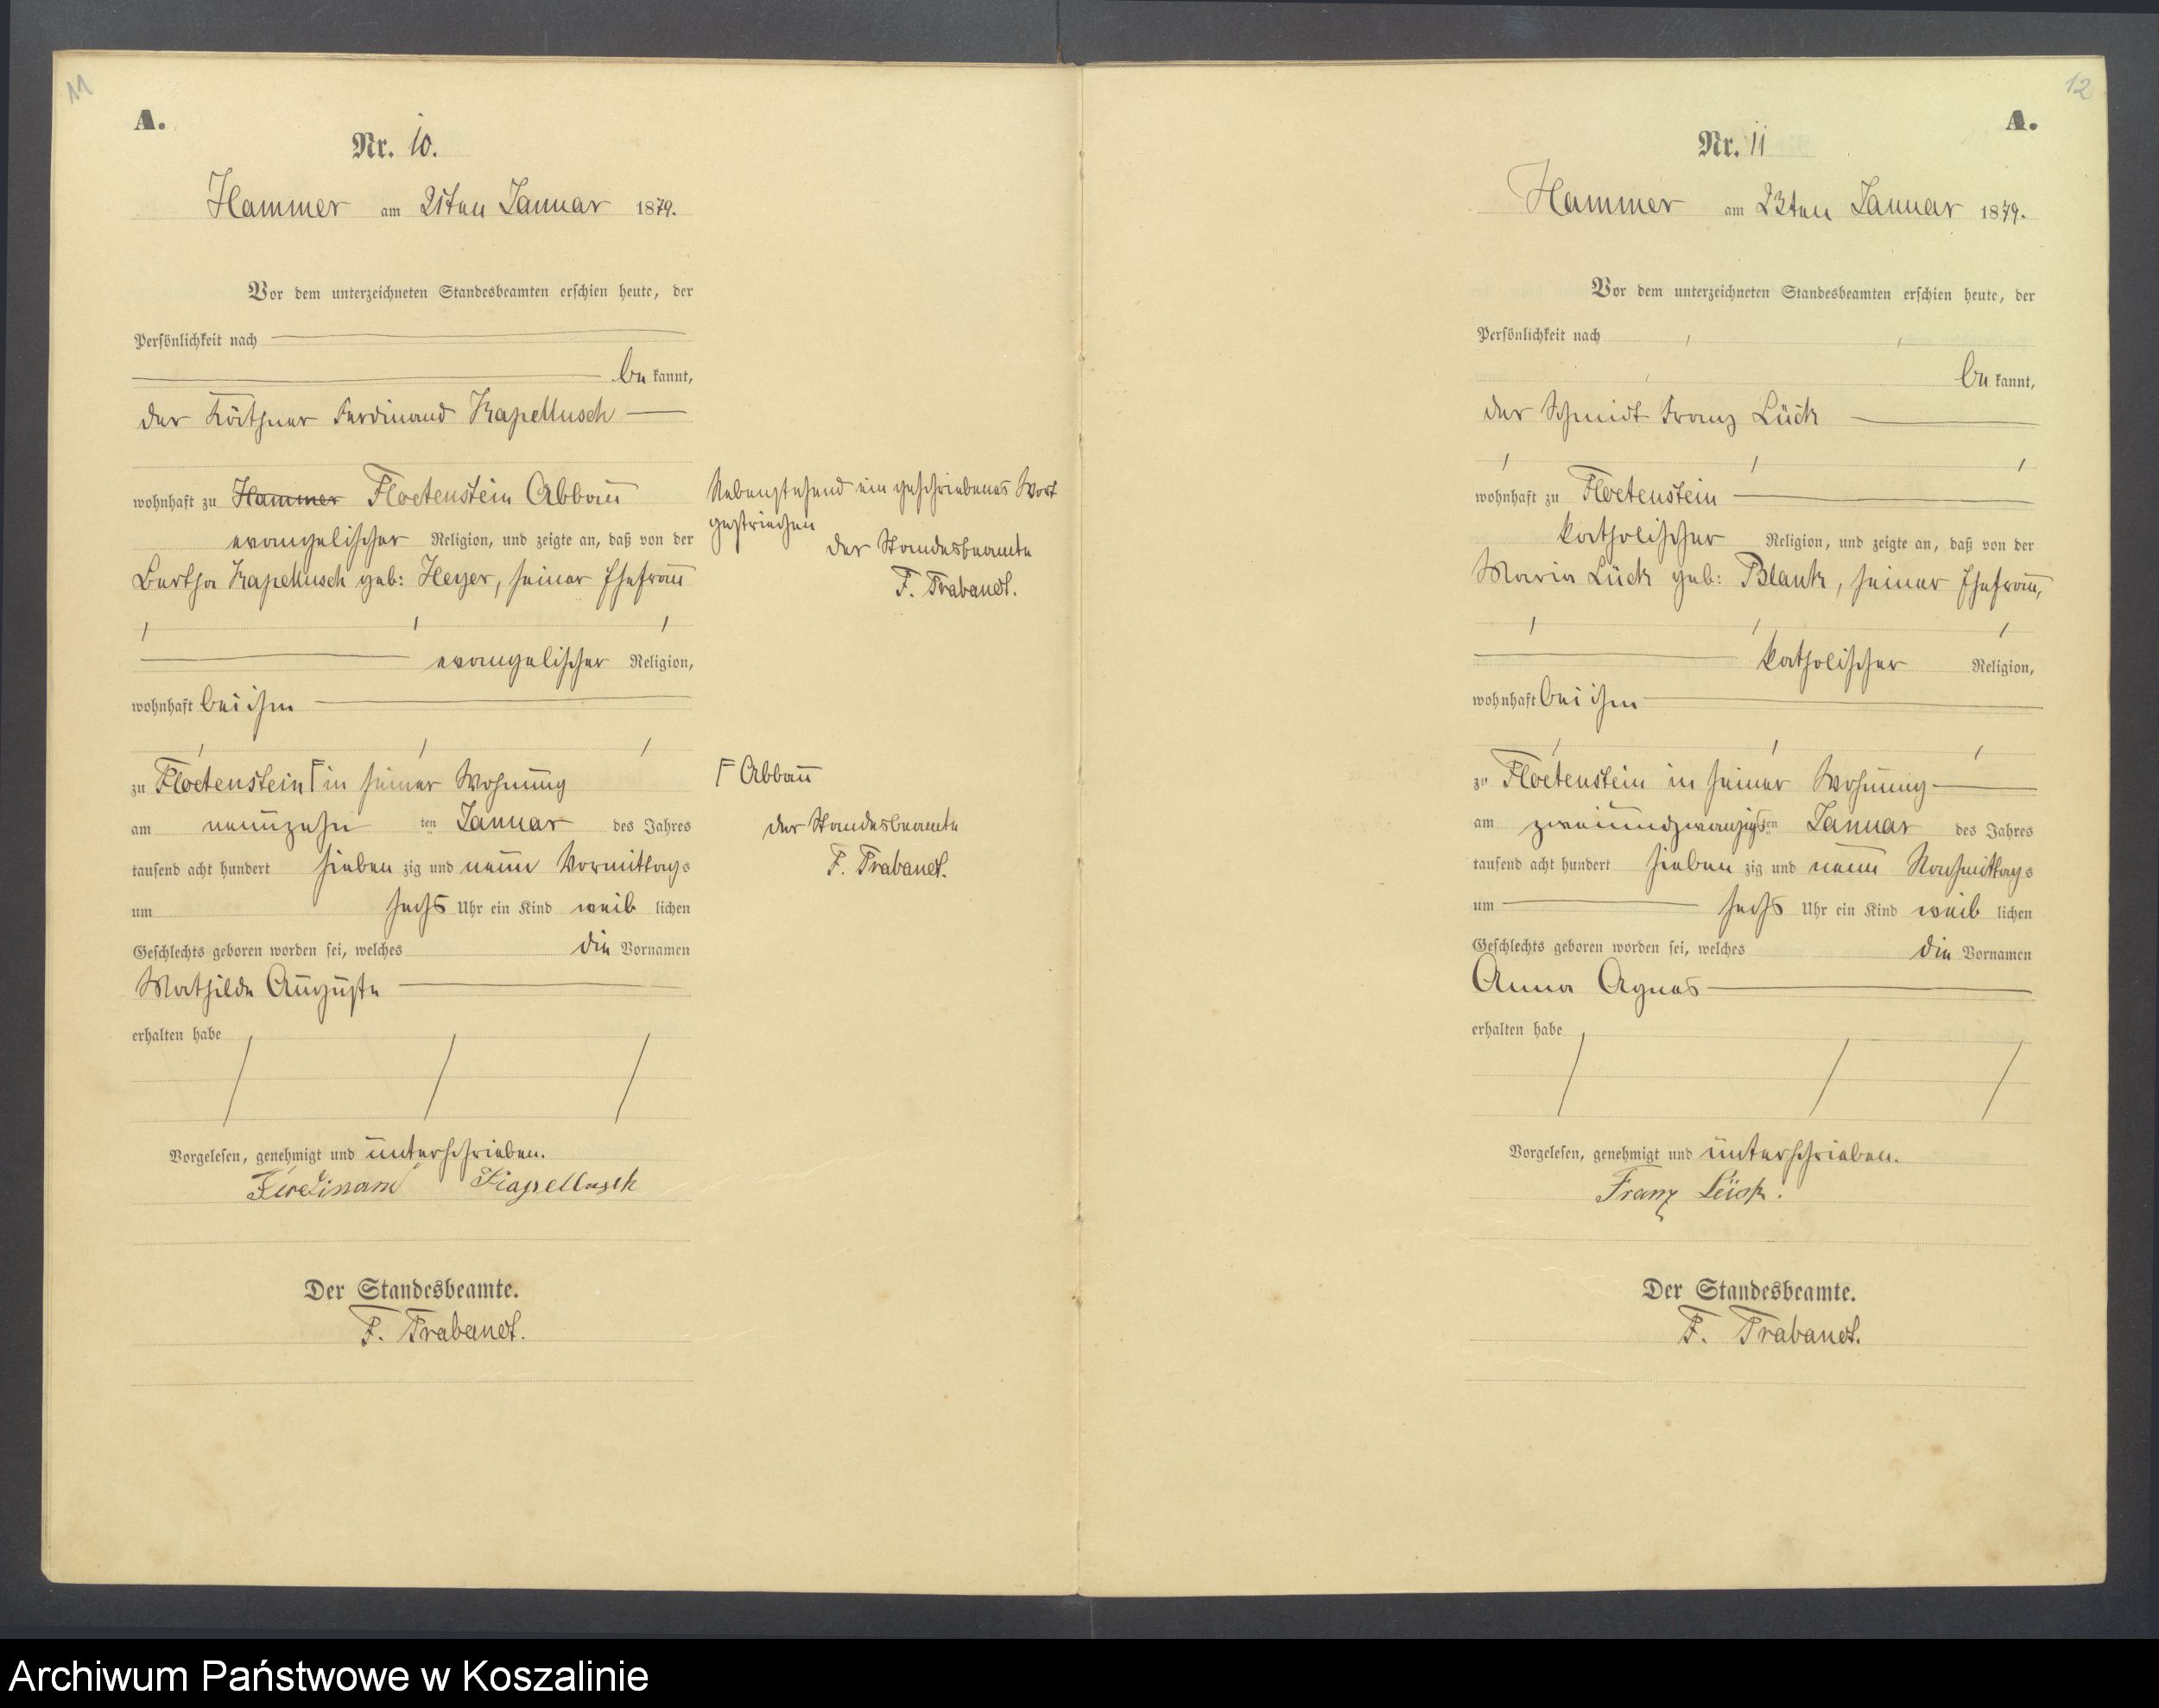 11
A.
Nr. 10.
Hammer am 21ten Januar 1879.
Vor dem unterzeichneten Standesbeamten erschien heute, der
Persönlichkeit nach
be kannt,
der Käthner Ferdinand Kapellusch
wohnhaft zu Hammer Floetenstein Abbau
evangelischer Religion, und zeigte an, daß von der
Bertha Kapellusch geb: Heyer, seiner Ehefrau
evangelischer Religion,
wohnhaft bei ihm
zu Floetenstein Γ in seiner Wohnung
am neunzehn ten Januar des Jahres
tausend acht hundert sieben zig und neun Vormittags
um sechs Uhr ein Kind weib lichen
Geschlechts geboren worden sei, welches die Vornamen
Mathilde Auguste
erhalten habe
Vorgelesen, genehmigt und unterschrieben.
Ferdinand Kapellusch
Der Standesbeamte.
F. Trabandt.
Nebenstehend ein geschriebenes Wort
gestrichen
der Standesbeamte
F. Trabandt.
Γ Abbau
der Standesbeamte
F. Trabandt.
12
A.
Nr. 11
Hammer am 23ten Januar 1879.
Vor dem unterzeichneten Standesbeamten erschien heute, der
Persönlichkeit nach
be kannt,
der Schmidt Franz Lück
wohnhaft zu Floetenstein
katholischer Religion, und zeigte an, daß von der
Maria Lück geb: Blank, seiner Ehefrau,
katholischer Religion,
wohnhaft bei ihm
zu Floetenstein in seiner Wohnung
am zweiundzwanzigsten Januar des Jahres
tausend acht hundert sieben zig und neun Nachmittags
um sechs Uhr ein Kind weib lichen
Geschlechts geboren worden sei, welches die Vornamen
Anna Agnes
erhalten habe
Vorgelesen, genehmigt und unterschrieben.
Franz Lück.
Der Standesbeamte.
F. Trabandt.
Archiwum Państwowe w Koszalinie